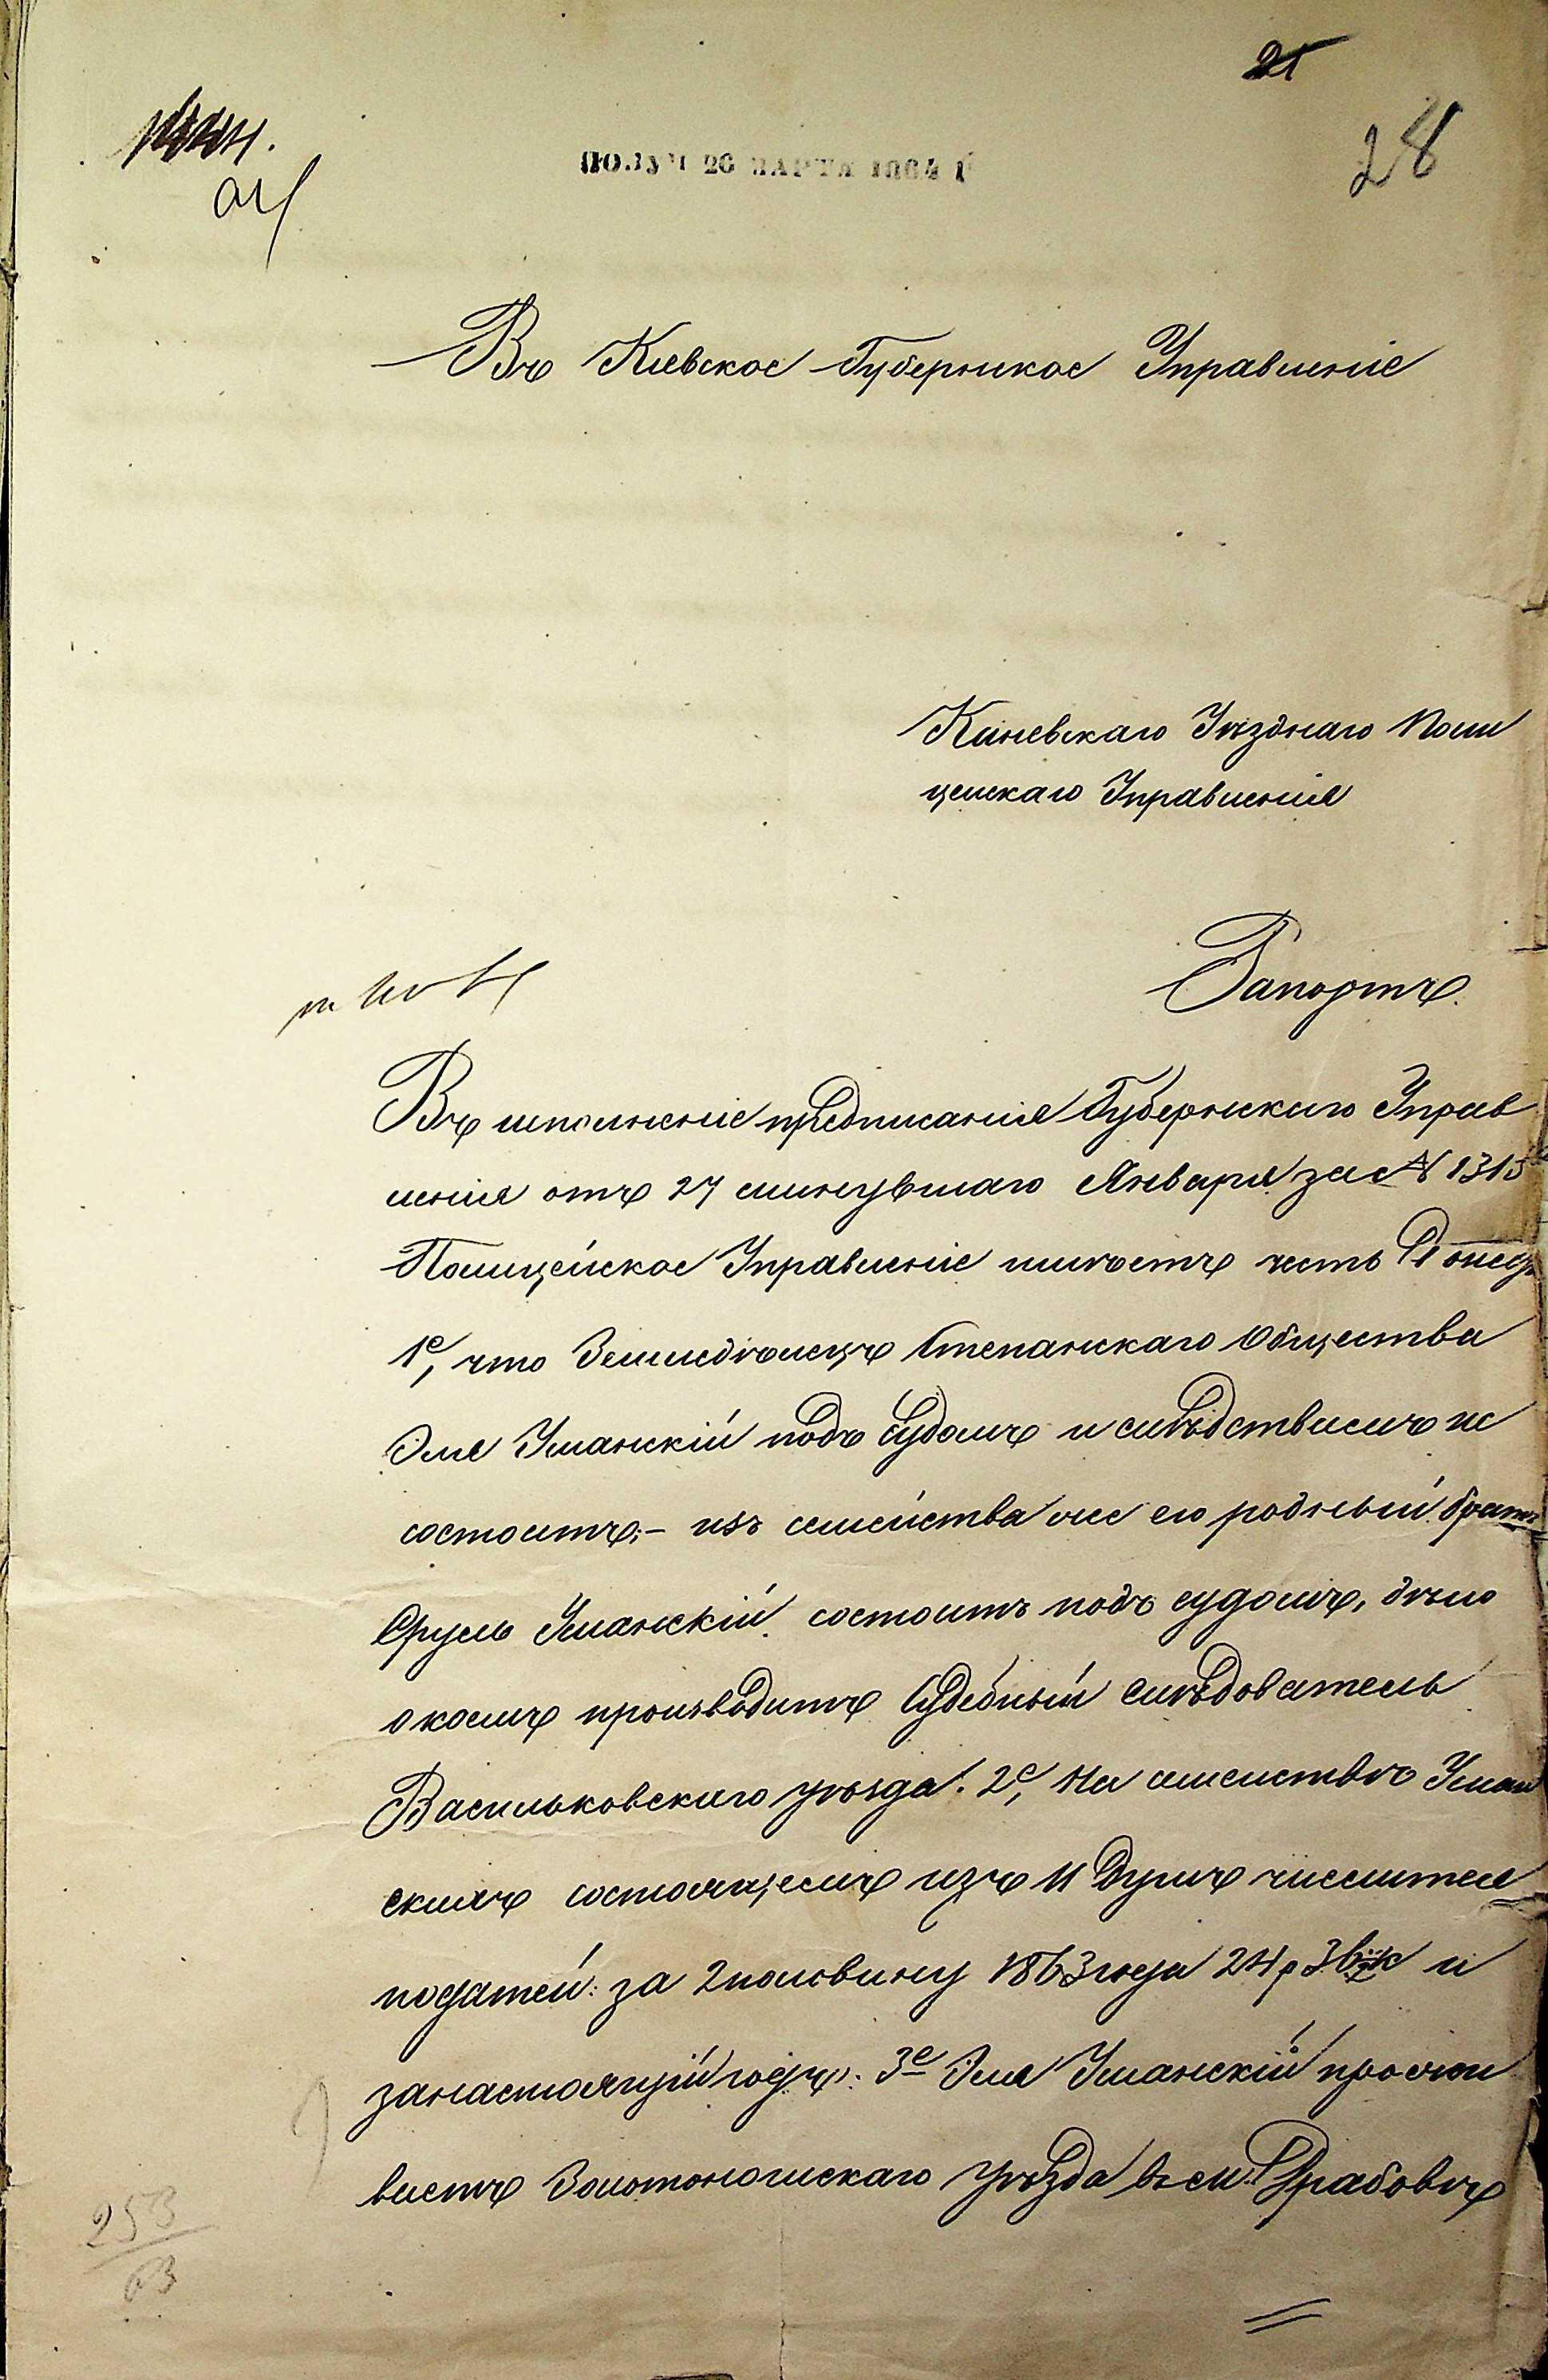 21
28
ПОЛУЧ 26 МАРТА 1864 Г
Въ Кіевское Губернское Управленіе
Каневскаго Уѣзднаго Поли
цейскаго Управленія
Рапортъ.
Въ исполненіе предписанія Губернскаго Управ
ленія отъ 27 минувшаго Января за № 1315
Полицейское Управленіе имѣетъ честь донес
1е, что Земледѣлецъ Степанскаго Общества
Эля Уманскій подъ судомъ и слѣдствіемъ не
состоитъ;– изъ семейства же его родный братъ
Сруль Уманскій состоитъ подъ судомъ, дѣло
о коемъ производитъ Судебный Слѣдователь
Васильковскаго уѣзда. 2е, На семействѣ Уман
скихъ состоящемъ изъ 11 Душъ числится
податей: за 2 половину 1863 года 24 р 36 к и
за настоящій годъ: 3е Эля Уманскій прожи
ваетъ Золотоношскаго уѣзда въ м. Драбовѣ
253
63